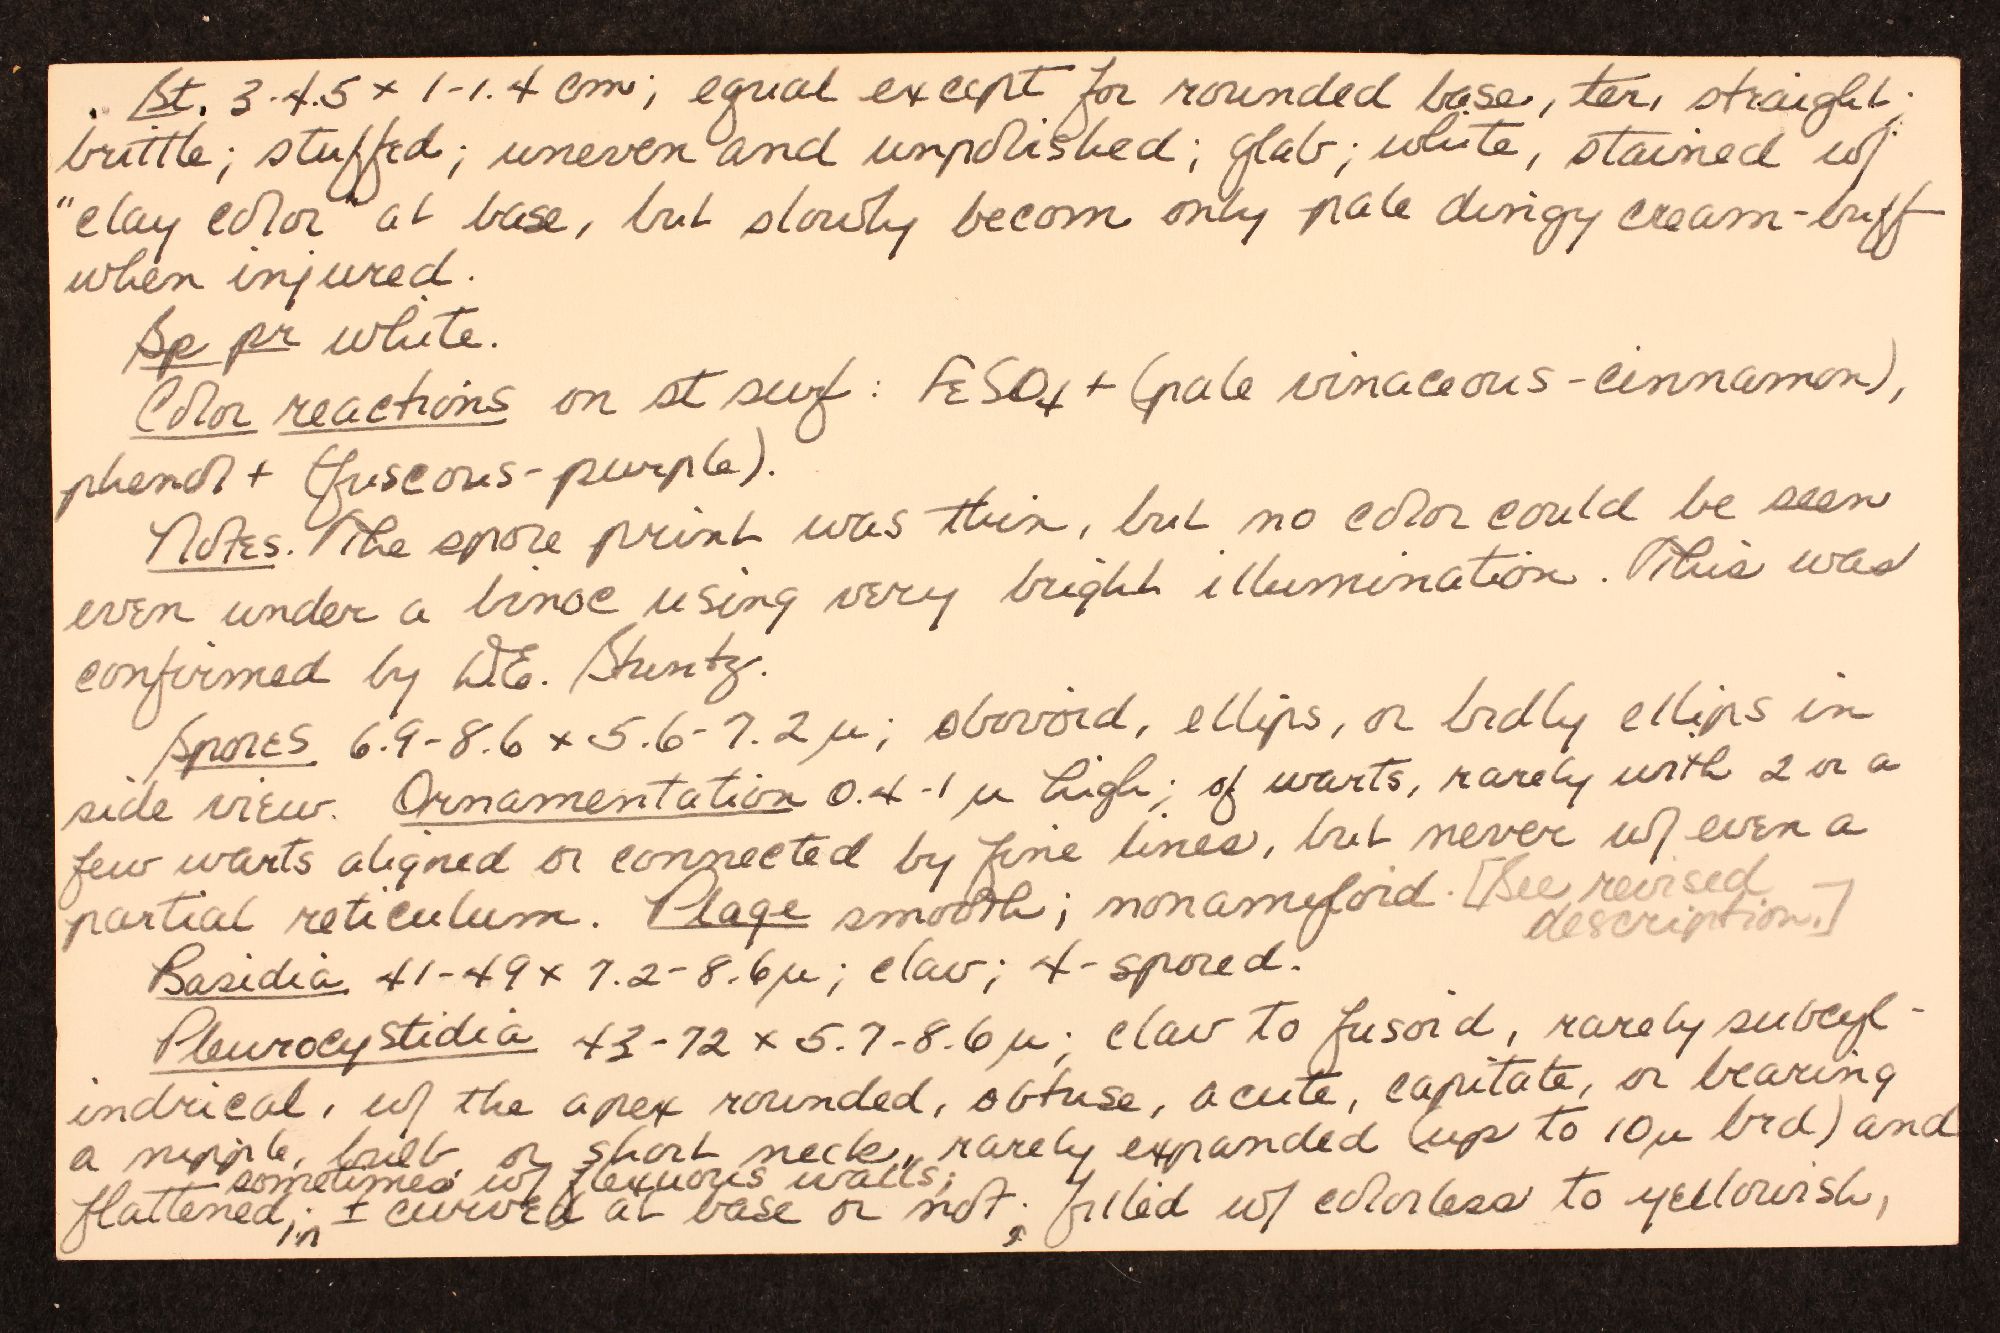 St. 3-4.5 x 1-1.4 cm; equal except for rounded base, ter, straight;
brittle; stuffed; uneven and unpolished; glab; white, stained w/
"clay color" at base, but slowly becom only pale dingy cream-buff
when injured.
Sp pr white.
Color reactions on st surf: FeSO4 + (pale vinaceous-cinnamon),
phenol + (fuscous-purple).
Notes. The spore print was thin, but no color could be seen
even under a binoc using very bright illumination. This was
confirmed by D.E. Stuntz.
Spores 6.9-8.6 x 5.6-7.2 µ; obovoid, ellips, or brdly ellips in
side view. Ornamentation 0.4-1 µ high; of warts, rarely with 2 or a
few warts aligned or connected by fine lines, but never w/ even a
partial reticulum. Plage smooth; nonamyloid. [See revised
description.]
Basidia 41-49 x 7.2-8.6 µ; clav; 4-spored.
Pleurocystidia 43-72 x 5.7-8.6 µ; clav to fusoid, rarely subcyl-
indrical, w/ the apex rounded, obtuse, acute, capitate, or bearing
a nipple, bulb, or short neck, rarely expanded (up to 10 µ brd) and
sometimes w/ flexuous walls;
flattened; ± curved at base or not; filled w/ colorless to yellowish,